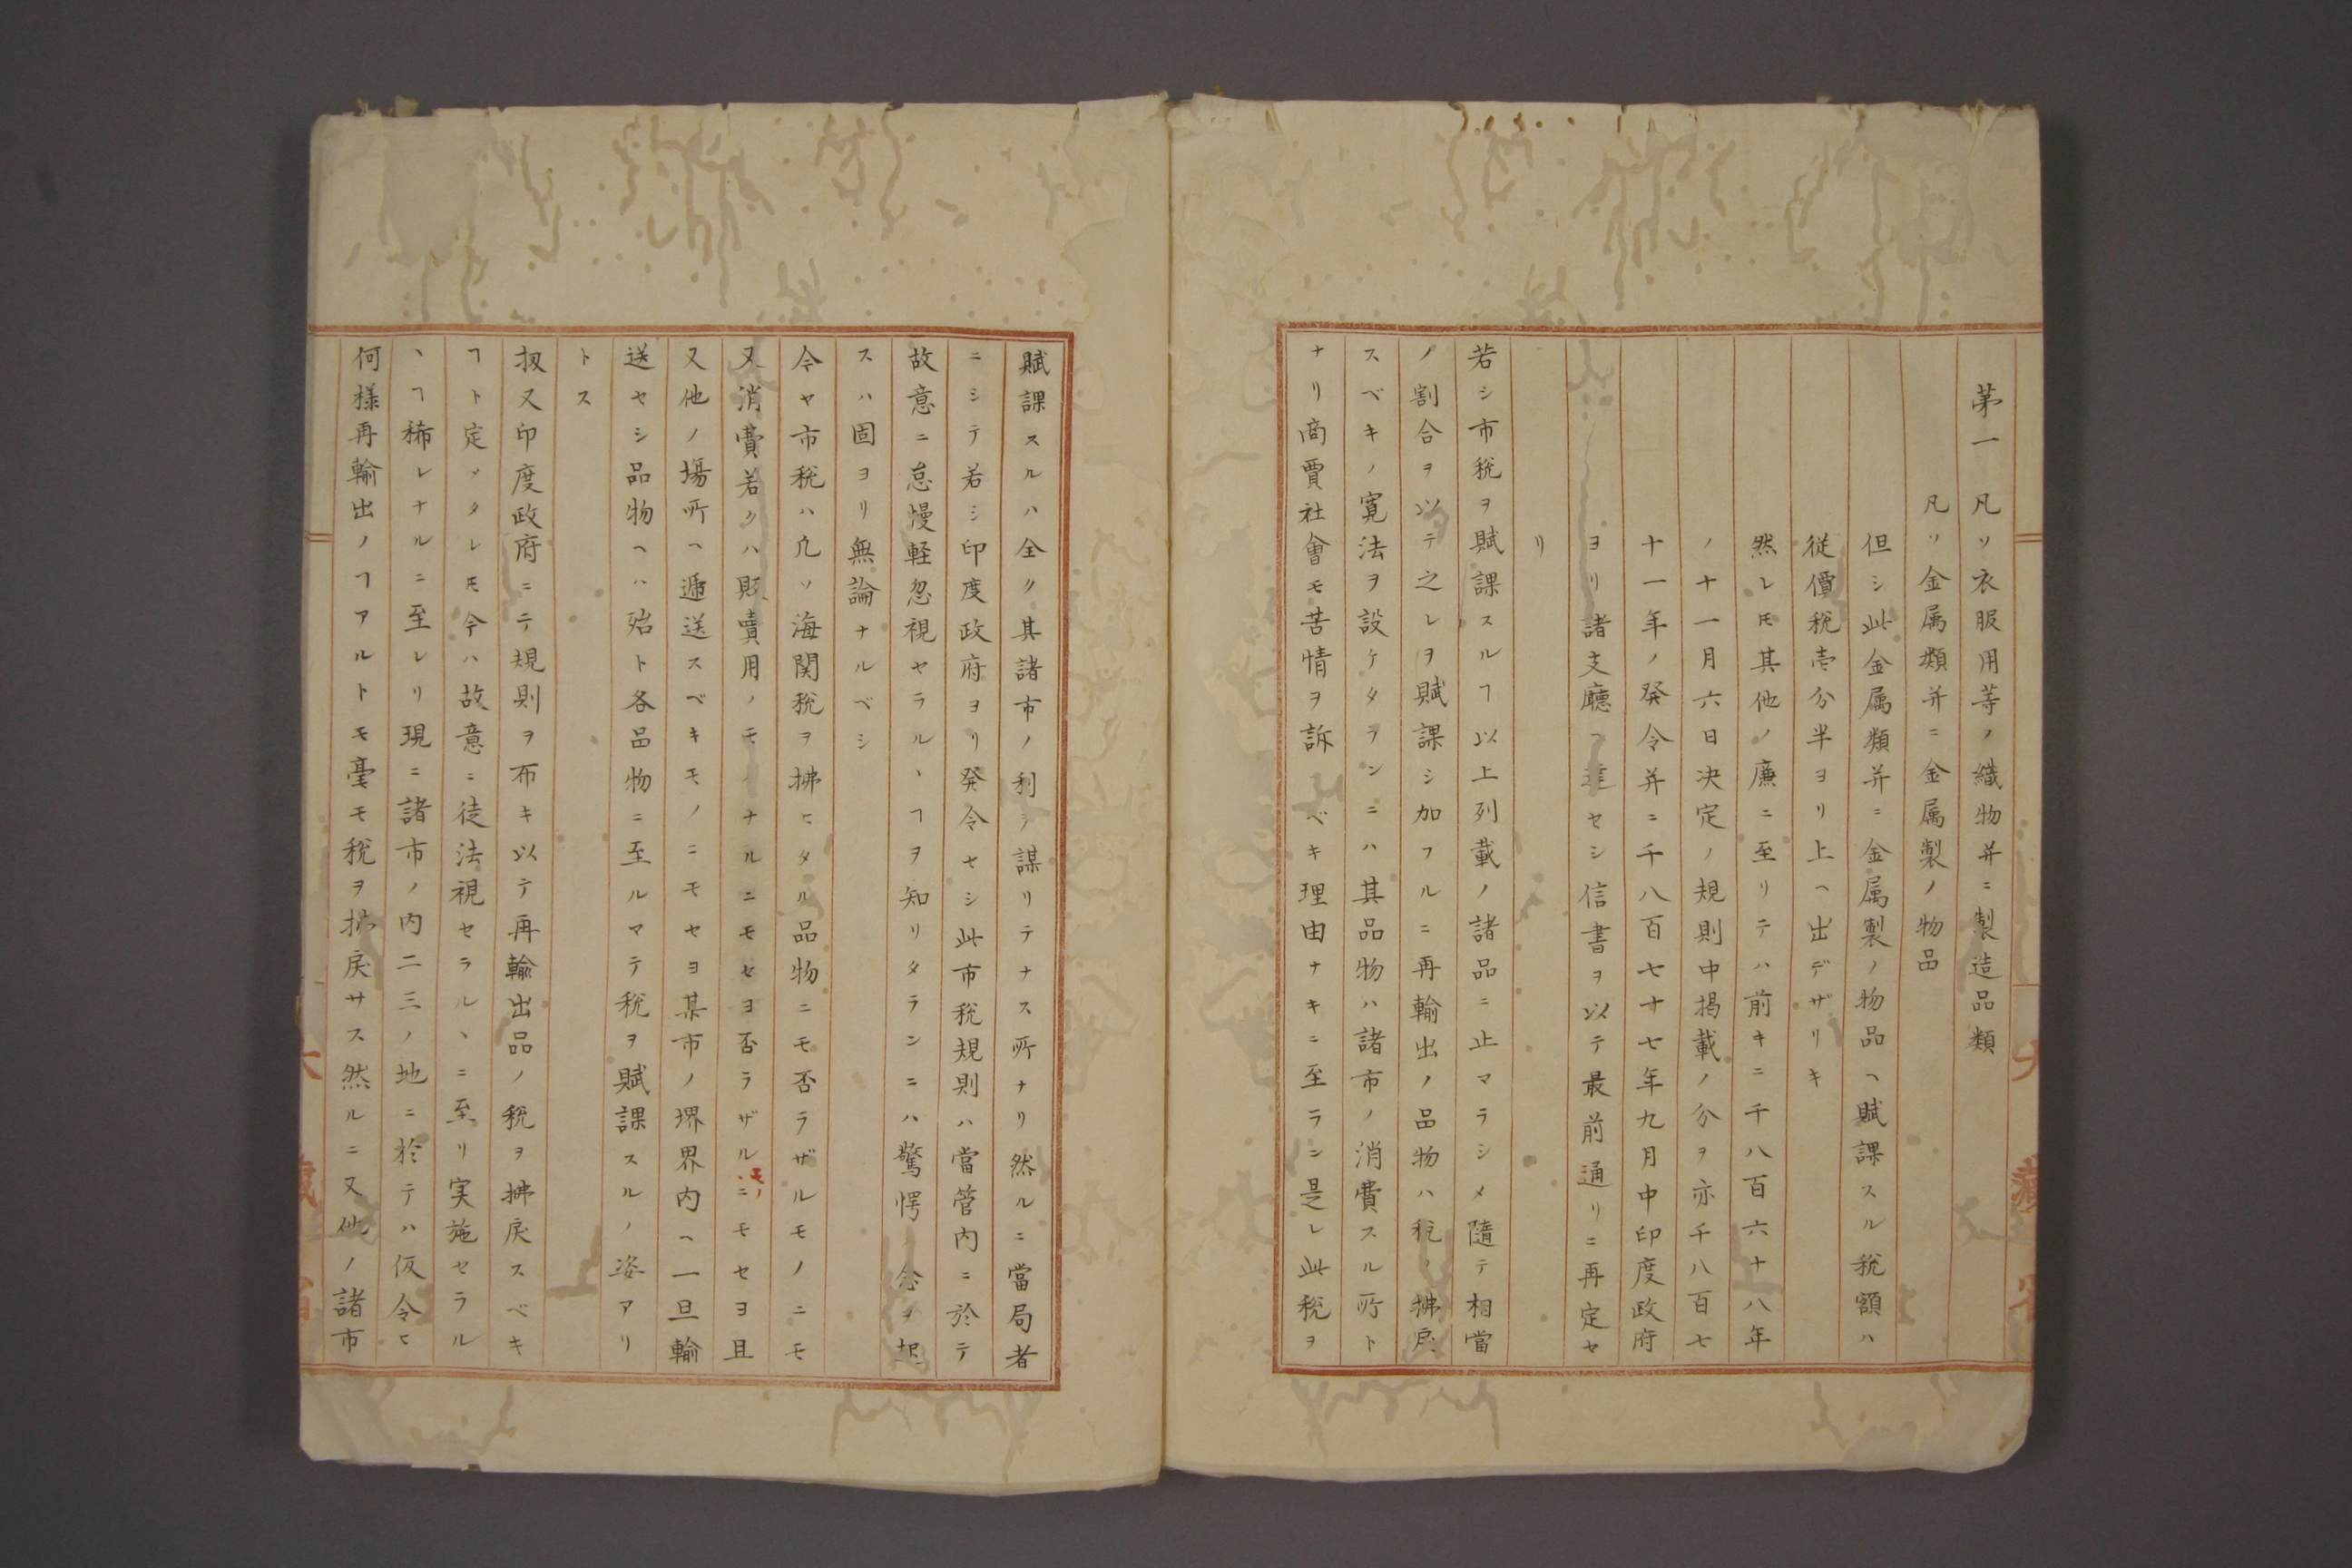 第一 凡ソ衣服用等ノ織物并ニ製造品類
凡ソ金属類并ニ金属製ノ物品
但シ此金属類并ニ金属製ノ物品ヘ賦課スル税額ハ
従價税壱分半ヨリ上ヘ出デザリキ
然レ𪜈其他ノ廉ニ至リテハ前キニ千八百六十八年
ノ十一月六日決定ノ規則中掲載ノ分ヲ亦千八百七
十一年ノ発令并ニ千八百七十七年九月中印度政府
ヨリ諸支廳ヘ達セシ信書ヲ以テ最前通リニ再定セ
リ
若シ市税ヲ賦課スルヿ以上列載ノ諸品ニ止マラシメ隨テ相當
ノ割合ヲ以テ之レヲ賦課シ加フルニ再輸出ノ品物ハ税ノ拂戻
スベキノ寛法ヲ設ケタランニハ其品物ハ諸市ノ消費スル所ト
ナリ商賈社會モ苦情ヲ訴ベキ理由ナキニ至ラン是レ此税ヲ
賦課スルハ全ク其諸市ノ利ヲ謀リテナス所ナリ然ルニ當局者
ニシテ若シ印度政府ヨリ発令セシ此市税規則ハ當管内ニ於テ
故意ニ怠慢軽忽視セラルヽヿヲ知リタランニハ驚愕ノ念ヲ起
スハ固ヨリ無論ナルベシ
今ヤ市税ハ凡ソ海関税ヲ拂ヒタル品物ニモ否ラザルモノニモ
又消費若クハ販賣用ノモノナルニモセヨ否ラザルモノニモセヨ且
又他ノ塲所ヘ遞送スベキモノニモセヨ某市ノ堺界内ヘ一旦輸
送セシ品物ヘハ殆ト各品物ニ至ルマテ税ヲ賦課スルノ姿アリ
トス
扨又印度政府ニテ規則ヲ布キ以テ再輸出品ノ税ヲ拂戻スベキ
ヿト定メタレ𪜈今ハ故意ニ徒法視セラルヽニ至リ実施セラル
ヽヿ稀レナルニ至レリ現ニ諸市ノ内二三ノ地ニ於テハ仮令ヒ
何様再輸出ノヿアルトモ毫モ税ヲ拂戻サス然ルニ又他ノ諸市